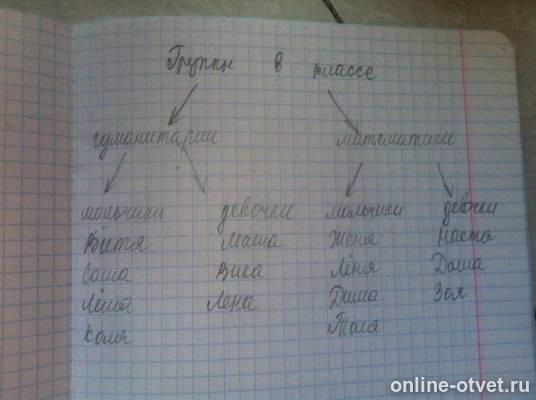 Группы в классе
гуманитарии математики
мальчики девочки мальчики девочки
Витя Маша Женя Настя
Саша Вика Лёня Даша
Лёша Лена Дима Зоя
Коля Толя
online-otvet.ru